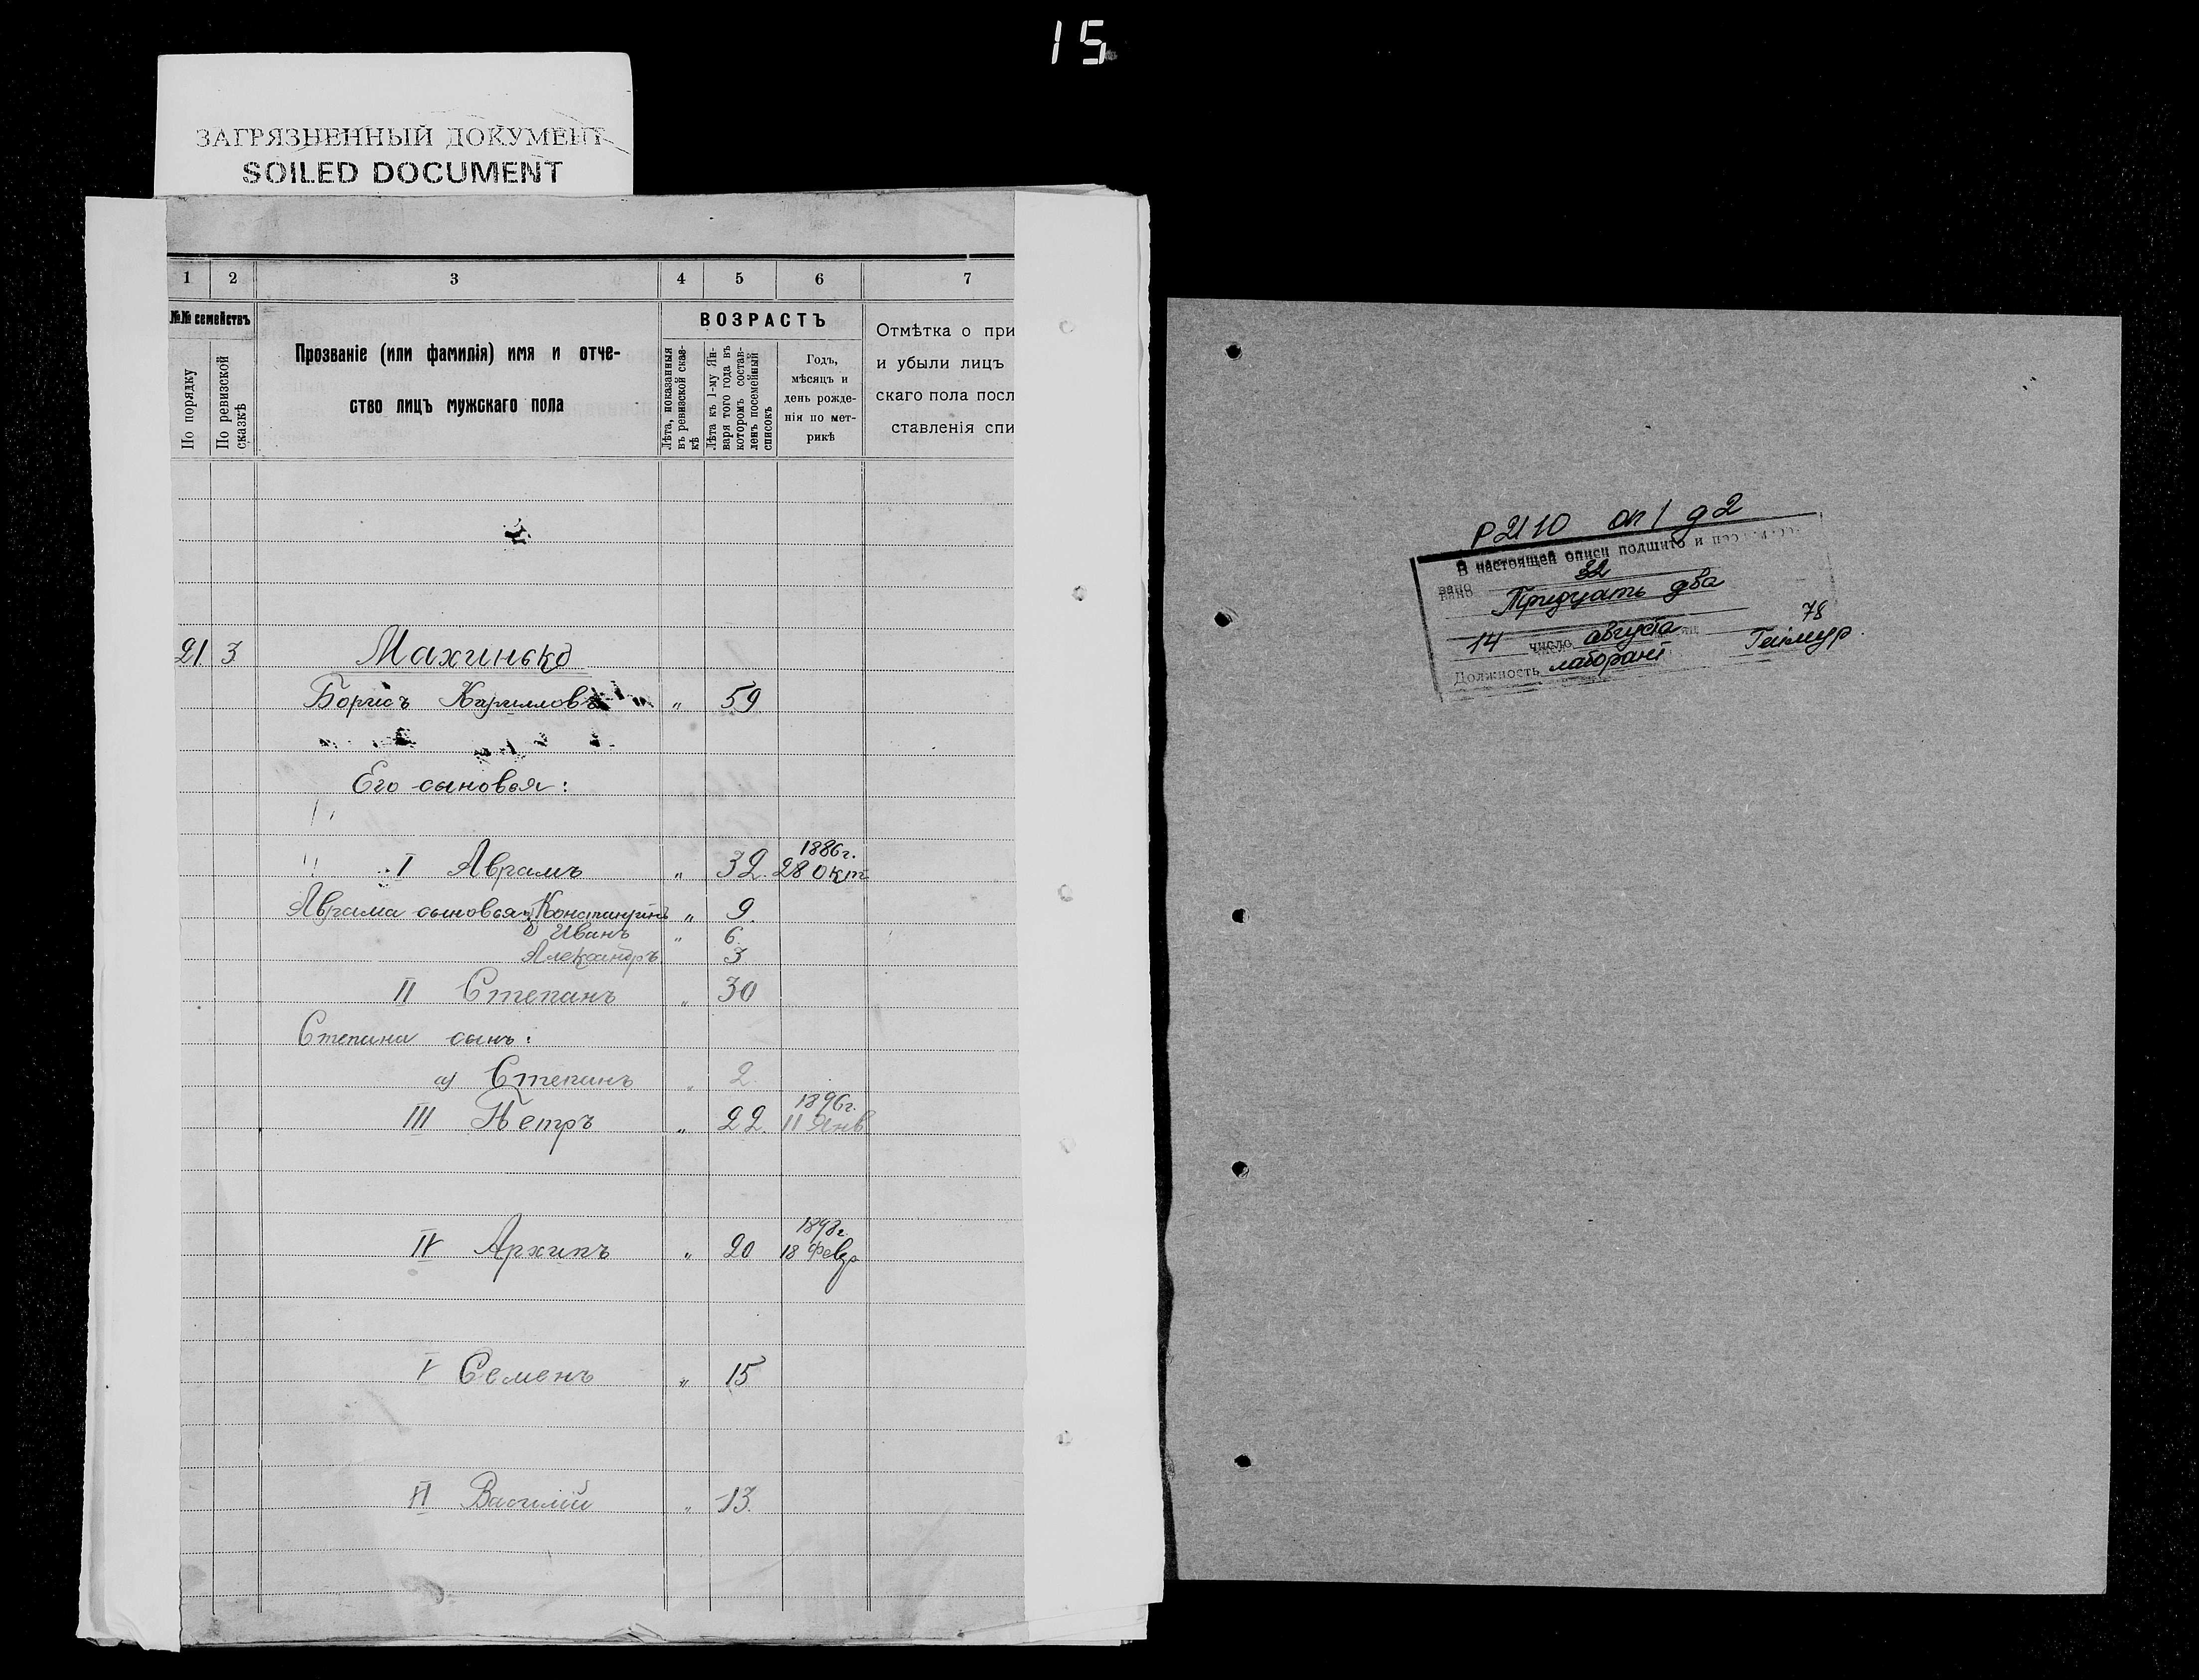 15
ЗАГРЯЗНЕННЫЙ ДОКУМЕНТ
SOILED DOCUMENT
1 2 3 4 5 6 7
№№ семействъ
По порядку
По ревизской сказкѣ
Прозваніе (или фамилія) имя и отче-
ство лицъ мужскаго пола
ВОЗРАСТЪ
Лѣта, показанныя
въ ревизской сказ-
кѣ
Лѣта къ 1-му Ян-
варя того года въ
которомъ состав-
ленъ посемейный
списокъ
Годъ,
мѣсяцъ и
день рожде-
нія по мет-
рикѣ
Отмѣтка о при
и убыли лицъ
скаго пола посл
ставленія спи
21 3 Махинько
Борисъ Кириллов „ 59
Его сыновья:
1886г.
I Аврамъ „ 32. 28 Окт
Аврама сыновья: Константинъ „ 9.
Иванъ „ 6.
Александръ 3
II Степанъ „ 30
Степана сынъ:
а) Степанъ „ 2.
1896г.
III Петръ „ 22. 11 Янв
1898г.
IV Архипъ „ 20 18 Февр
V Семенъ „ 15
VI Василій „ 13.
Р2110 оп 1 д 2
В настоящей описи подшито и
вано 32
Тридцать два
14 число августа 78
Должность лаборант